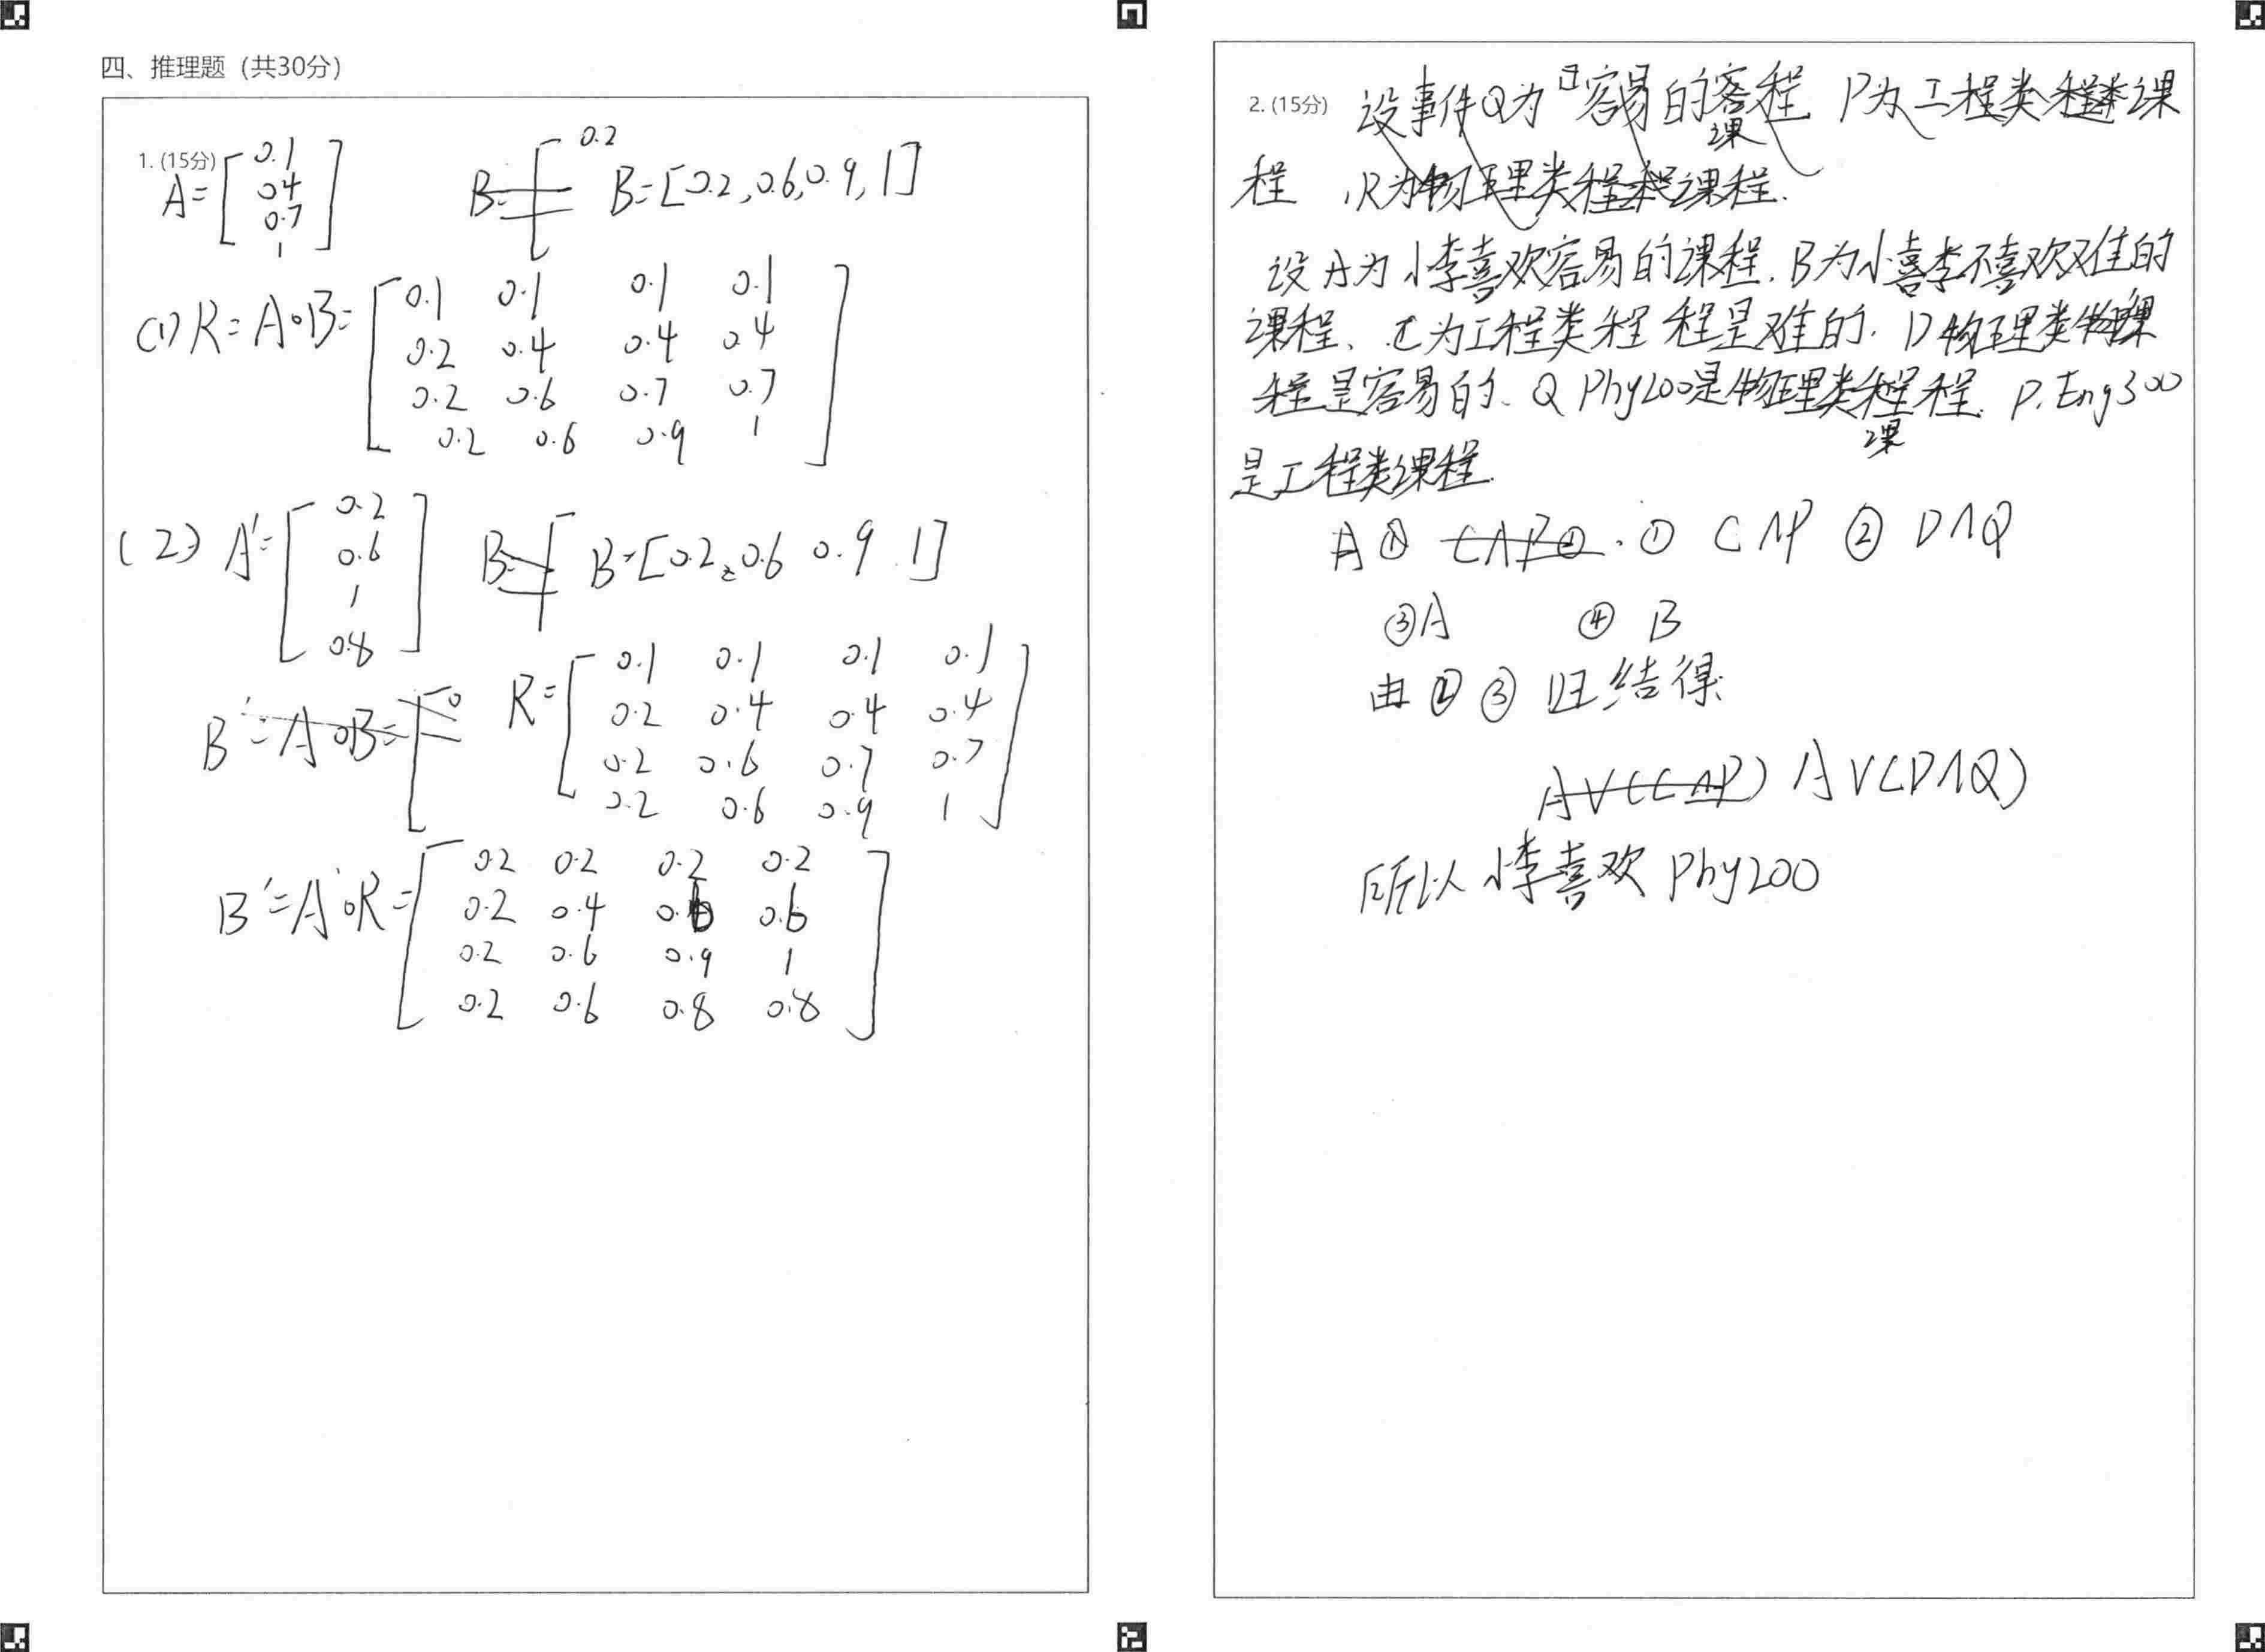 四、推理题（共30分）
1. (15分)
A= [ 0.1
0.4
0.7
1 ]
B= [ 0.2
B=[0.2,0.6,0.9,1]
(1) R=A∘B= [ 0.1 0.1 0.1 0.1
0.2 0.4 0.4 0.4
0.2 0.6 0.7 0.7
0.2 0.6 0.9 1 ]
(2) A'= [ 0.2
0.6
1
0.8 ]
B= [
B=[0.2 0.6 0.9 1]
B'=A∘B= [ 0
R= [ 0.1 0.1 0.1 0.1
0.2 0.4 0.4 0.4
0.2 0.6 0.7 0.7
0.2 0.6 0.9 1 ]
B'=A'∘R= [ 0.2 0.2 0.2 0.2
0.2 0.4 0.6 0.6
0.2 0.6 0.9 1
0.2 0.6 0.8 0.8 ]
2. (15分) 设事件Q为容易的课程 P为工程类课
程 ,R为物理类课程.
设A为小李喜欢容易的课程,B为小李不喜欢难的
课程、C为工程类程程是难的.D物理类课
程是容易的、Q Phy200是物理类课程.P.Eng300
是工程类课程.
A ① C∧P② . ① C∧P ② D∧Q
③A ④ B
由②③归结得:
A∨(C∧P) A∨(D∧Q)
所以小李喜欢Phy200